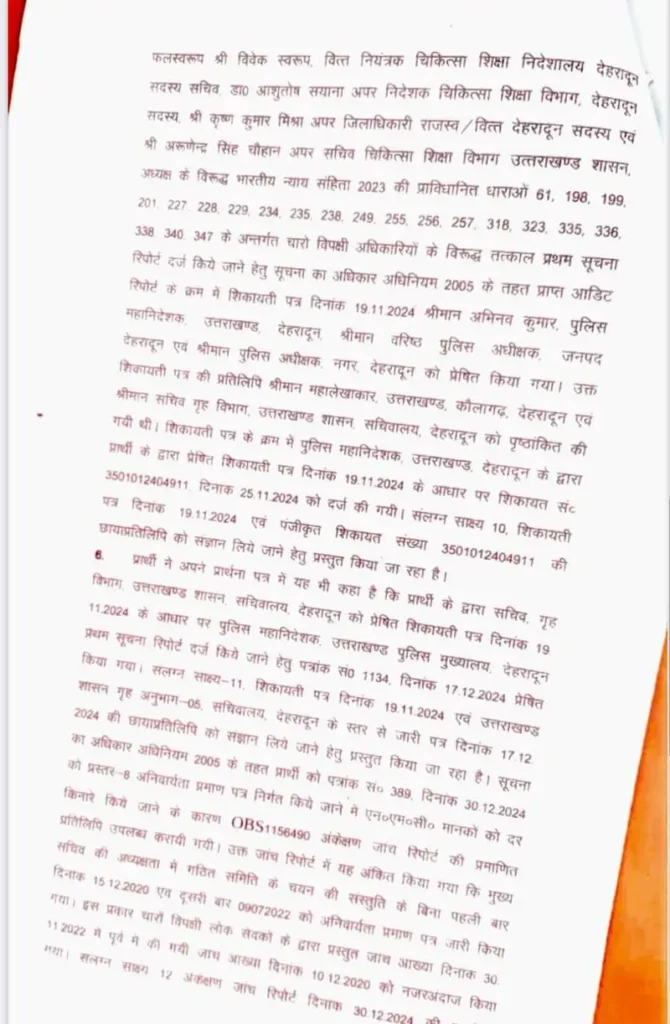 फलस्वरूप श्री विवेक स्वरूप, वित्त नियंत्रक चिकित्सा शिक्षा निदेशालय देहरादून
सदस्य सचिव, डा0 आशुतोष सयाना अपर निदेशक चिकित्सा शिक्षा विभाग, देहरादून
सदस्य, श्री कृष्ण कुमार मिश्रा अपर जिलाधिकारी राजस्व/वित्त देहरादून सदस्य एवं
श्री अरूणेन्द्र सिंह चौहान अपर सचिव चिकित्सा शिक्षा विभाग उत्तराखण्ड शासन,
अध्यक्ष के विरूद्ध भारतीय न्याय संहिता 2023 की प्राविधानित धाराओं 61, 198, 199,
201, 227, 228, 229, 234, 235, 238, 249, 255, 256, 257, 318, 323, 335, 336,
338, 340, 347 के अन्तर्गत चारो विपक्षी अधिकारियों के विरूद्ध तत्काल प्रथम सूचना
रिपोर्ट दर्ज किये जाने हेतु सूचना का अधिकार अधिनियम 2005 के तहत प्राप्त आडिट
रिपोर्ट के क्रम में शिकायती पत्र दिनांक 19.11.2024 श्रीमान अभिनव कुमार, पुलिस
महानिदेशक, उत्तराखण्ड, देहरादून, श्रीमान वरिष्ठ पुलिस अधीक्षक, जनपद
देहरादून एवं श्रीमान पुलिस अधीक्षक, नगर, देहरादून को प्रेषित किया गया। उक्त
शिकायती पत्र की प्रतिलिपि श्रीमान महालेखाकार, उत्तराखण्ड, कौलागढ़, देहरादून एवं
श्रीमान सचिव गृह विभाग, उत्तराखण्ड शासन, सचिवालय, देहरादून को पृष्ठांकित की
गयी थी। शिकायती पत्र के क्रम में पुलिस महानिदेशक, उत्तराखण्ड, देहरादून के द्वारा
प्रार्थी के द्वारा प्रेषित शिकायती पत्र दिनांक 19.11.2024 के आधार पर शिकायत सं०
3501012404911, दिनाक 25.11.2024 को दर्ज की गयी। संलग्न साक्ष्य 10, शिकायती
पत्र दिनांक 19.11.2024 एवं पंजीकृत शिकायत संख्या 3501012404911 की
छायाप्रतिलिपि को संज्ञान लिये जाने हेतु प्रस्तुत किया जा रहा है।
6. प्रार्थी ने अपने प्रार्थना पत्र में यह भी कहा है कि प्रार्थी के द्वारा सचिव, गृह
विभाग, उत्तराखण्ड शासन, सचिवालय, देहरादून को प्रेषित शिकायती पत्र दिनांक 19.
11.2024 के आधार पर पुलिस महानिदेशक, उत्तराखण्ड पुलिस मुख्यालय, देहरादून
प्रथम सूचना रिपोर्ट दर्ज किये जाने हेतु पत्रांक सं0 1134, दिनांक 17.12.2024 प्रेषित
किया गया। संलग्न साक्ष्य-11, शिकायती पत्र दिनांक 19.11.2024 एवं उत्तराखण्ड
शासन गृह अनुभाग-05, सचिवालय, देहरादून के स्तर से जारी पत्र दिनांक 17.12.
2024 की छायाप्रतिलिपि को संज्ञान लिये जाने हेतु प्रस्तुत किया जा रहा है। सूचना
का अधिकार अधिनियम 2005 के तहत प्रार्थी को पत्रांक सं० 389, दिनांक 30.12.2024
को प्रस्तर-8 अनिवार्यता प्रमाण पत्र निर्गत किये जाने में एन०एम०सी० मानकों को दर
किनारे किये जाने के कारण OBS1156490 अंकेक्षण जांच रिपोर्ट की प्रमाणित
प्रतिलिपि उपलब्ध करायी गयी। उक्त जांच रिपोर्ट में यह अंकित किया गया कि मुख्य
सचिव की अध्यक्षता में गठित समिति के चयन की संस्तुति के बिना पहली बार
दिनांक 15.12.2020 एव दूसरी बार 09072022 को अनिवार्यता प्रमाण पत्र जारी किया
गया। इस प्रकार चारों विपक्षी लोक सेवकों के द्वारा प्रस्तुत जांच आख्या दिनांक 30.
11.2022 में पूर्व में की गयी जांच आख्या दिनाक 10.12.2020 को नजरअंदाज किया
गया। संलग्न साक्ष्य 12 अंकेक्षण जांच रिपोर्ट दिनांक 30.12.2024 की